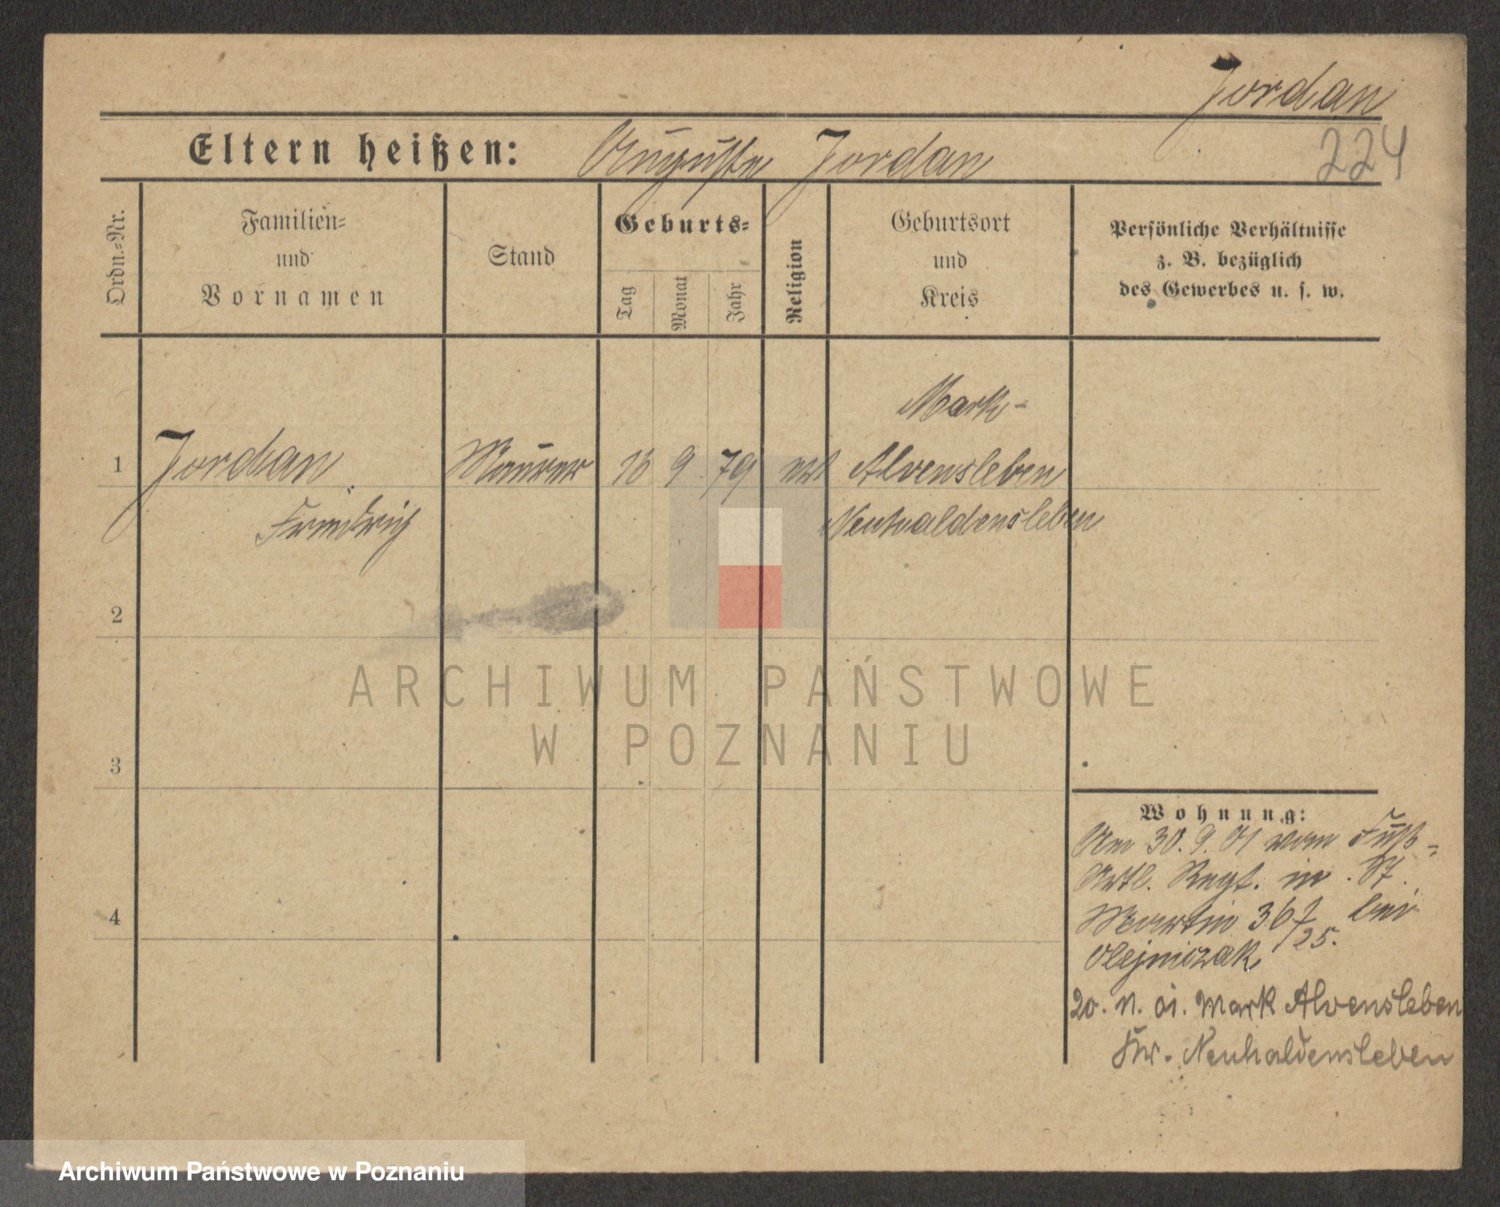 Jordan
224
Eltern heißen: Auguste Jordan
Ordn.-Nr.
Familien-
und
Vornamen
Stand
Geburts-
Tag
Monat
Jahr
Religion
Geburtsort
und
Kreis
Persönliche Verhältnisse
z. B. bezüglich
des Gewerbes u. s. w.
Mark-
1 Jordan Maurer 9 79 Alvensleben
Friedrich Neuhaldensleben
2
3
4
Wohnung:
Am 30. 9. 01 vom Fuß-
Artl. Regt. in
Martin 36 bei
Olejniczak 25.
20. 11. 01. Mark Alvensleben
Kr. Neuhaldensleben
ARCHIWUM PAŃSTWOWE
W POZNANIU
Archiwum Państwowe w Poznaniu